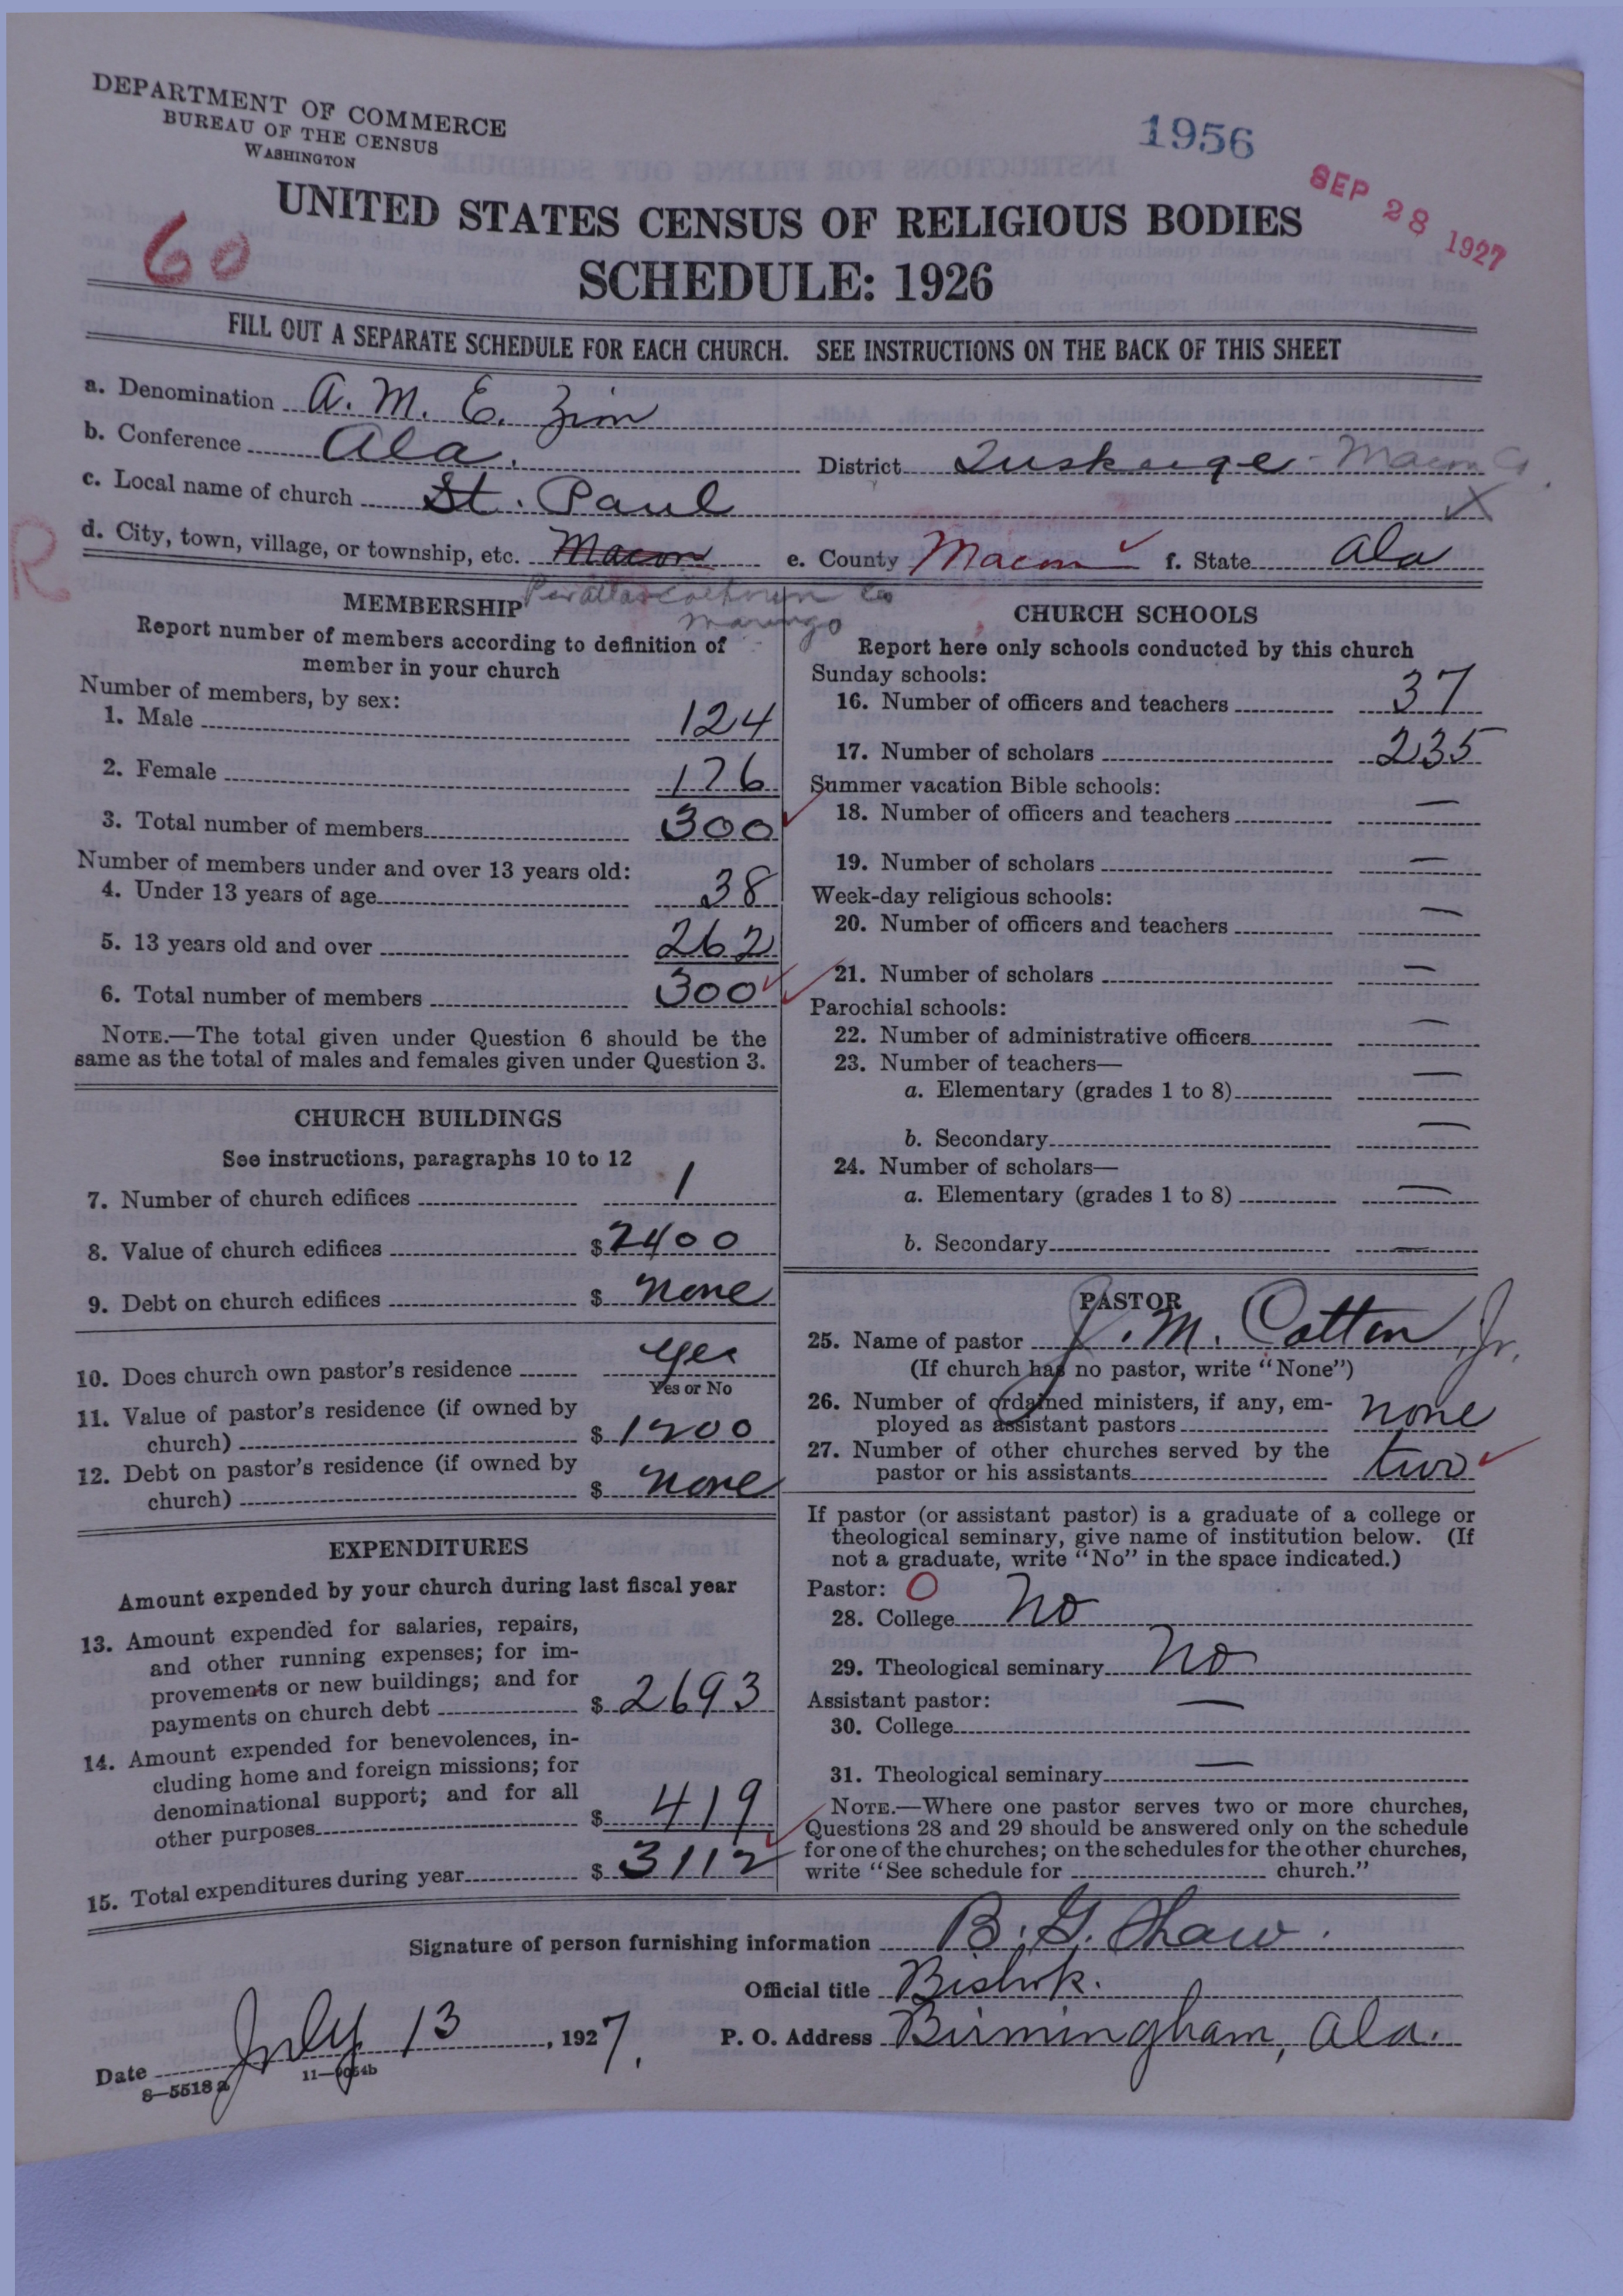 DEPARTMENT OF COMMERCE
BUREAU OF THE CENSUS
WASHINGTON
1956
SEP 28 1927
60
UNITED STATES CENSUS OF RELIGIOUS BODIES
SCHEDULE: 1926
FILL OUT A SEPARATE SCHEDULE FOR EACH CHURCH. SEE INSTRUCTIONS ON THE BACK OF THIS SHEET
a. Denomination A. M. E. Zion
b. Conference Ala. District Tuskeege - Macon Co.
c. Local name of church St. Paul X
R
d. City, town, village, or township, etc. Macon e. County Macon f. State Ala
Marengo
MEMBERSHIP
Report number of members according to definition of
member in your church
Number of members, by sex:
1. Male 124
2. Female 176
3. Total number of members 300
Number of members under and over 13 years old:
4. Under 13 years of age 38
5. 13 years old and over 262
6. Total number of members 300
NOTE.—The total given under Question 6 should be the
same as the total of males and females given under Question 3.
CHURCH BUILDINGS
See instructions, paragraphs 10 to 12
7. Number of church edifices 1
8. Value of church edifices $ 2400
9. Debt on church edifices $ none
10. Does church own pastor's residence yes
Yes or No
11. Value of pastor's residence (if owned by
church) $ 1200
12. Debt on pastor's residence (if owned by
church) $ none
EXPENDITURES
Amount expended by your church during last fiscal year
13. Amount expended for salaries, repairs,
and other running expenses; for im-
provements or new buildings; and for
payments on church debt $ 2693
14. Amount expended for benevolences, in-
cluding home and foreign missions; for
denominational support; and for all
other purposes $ 419
15. Total expenditures during year $ 3112
CHURCH SCHOOLS
Report here only schools conducted by this church
Sunday schools:
16. Number of officers and teachers 37
17. Number of scholars 235
Summer vacation Bible schools:
18. Number of officers and teachers —
19. Number of scholars —
Week-day religious schools:
20. Number of officers and teachers —
21. Number of scholars —
Parochial schools:
22. Number of administrative officers —
23. Number of teachers—
a. Elementary (grades 1 to 8) —
b. Secondary —
24. Number of scholars—
a. Elementary (grades 1 to 8) —
b. Secondary —
PASTOR
25. Name of pastor J. M. Cotton, Jr.
(If church has no pastor, write "None")
26. Number of ordained ministers, if any, em-
ployed as assistant pastors none
27. Number of other churches served by the
pastor or his assistants two
If pastor (or assistant pastor) is a graduate of a college or
theological seminary, give name of institution below. (If
not a graduate, write "No" in the space indicated.)
Pastor: O
28. College No
29. Theological seminary No
Assistant pastor:
30. College —
31. Theological seminary —
NOTE.—Where one pastor serves two or more churches,
Questions 28 and 29 should be answered only on the schedule
for one of the churches; on the schedules for the other churches,
write "See schedule for church."
Signature of person furnishing information B. G. Shaw.
Official title Bishop.
Date July 13, 1927. P. O. Address Birmingham, Ala.
8—5518 a 11—9054b